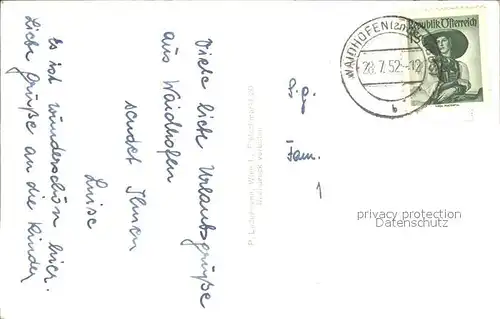 Viele liebe Urlaubsgrüße
aus Waidhofen
sendet Ihnen
Luise
Es ist wunderschön hier.
Liebe Grüße an die Kinder
WAIDHOFEN
28.7.52.-12
b
Republik Österreich
P.g.
Fam.
1
3
privacy protection
Datenschutz